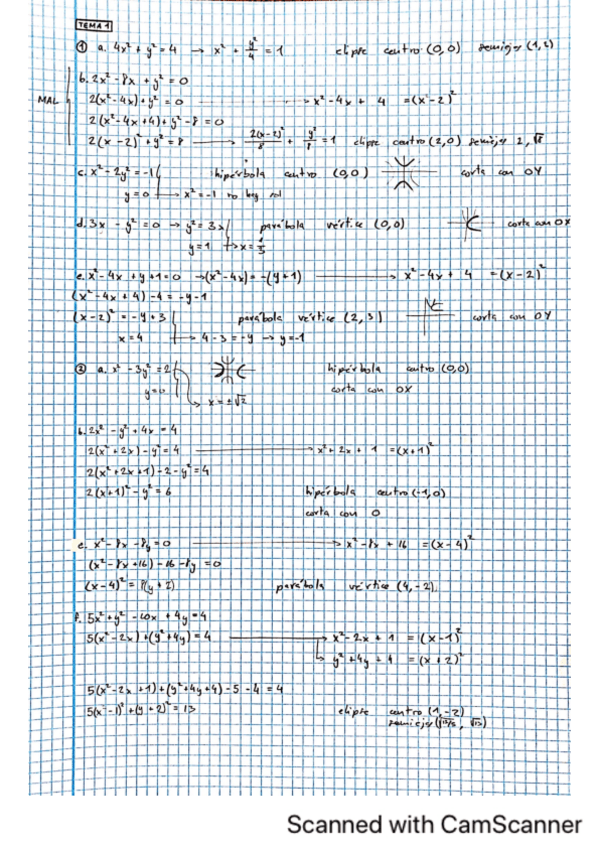 TEMA 1
① a. 4x² + y² = 4 → x² + y²/4 = 1 elipse centro (0,0) semiejes (1,2)
b. 2x² - 8x + y² = 0
MAL 2(x² - 4x) + y² = 0 → x² - 4x + 4 = (x-2)²
2(x² - 4x + 4) + y² - 8 = 0
2(x - 2)² + y² = 8 → 2(x-2)²/8 + y²/8 = 1 elipse centro (2,0) semiejes 2, √8
c. x² - 2y² = -1 hipérbola centro (0,0) corta con OY
y = 0 → x² = -1 no hay sol
d. 3x - y² = 0 → y² = 3x parábola vértice (0,0) corta con OX
y = 1 → x = 1/3
e. x² - 4x + y + 1 = 0 → (x² - 4x) = -(y+1) → x² - 4x + 4 = (x-2)²
(x² - 4x + 4) - 4 = -y - 1
(x - 2)² = -y + 3 parábola vértice (2,3) corta con OY
x = 4 → 4 - 3 = -y → y = -1
② a. x² - 3y² = 2 hipérbola centro (0,0)
y = 0 corta con OX
x = ±√2
b. 2x² - y² + 4x = 4
2(x² + 2x) - y² = 4 → x² + 2x + 1 = (x+1)²
2(x² + 2x + 1) - 2 - y² = 4
2(x+1)² - y² = 6 hipérbola centro (-1,0)
corta con O
e. x² - 8x - 8y = 0 → x² - 8x + 16 = (x-4)²
(x² - 8x + 16) - 16 - 8y = 0
(x-4)² = 8(y+2) parábola vértice (4,-2)
f. 5x² + y² - 10x + 4y = 4
5(x² - 2x) + (y² + 4y) = 4 → x² - 2x + 1 = (x-1)²
y² + 4y + 4 = (x+2)²
5(x² - 2x + 1) + (y² + 4y + 4) - 5 - 4 = 4
5(x² - 1)² + (y + 2)² = 13 elipse centro (1,-2)
semiejes (√13/5, √13)
Scanned with CamScanner